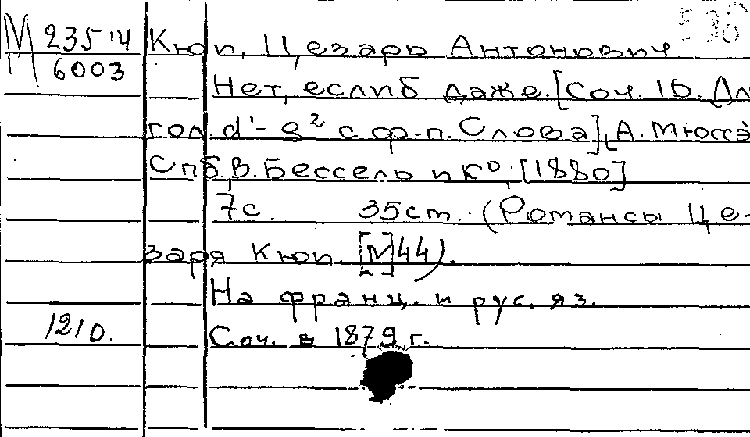 536
М 235 14 Кюи, Цезарь Антонович
6003
Нет, еслиб даже. [Соч. 10. Дл
гол. d¹-g² с ф-п. Слова] А. Мюссэ
Спб, В. Бессель и Кº, [1880]
7с. 35см. (Романсы Це-
заря Кюи. [№]44).
На франц. и рус. яз.
1210. Соч. в 1879 г.